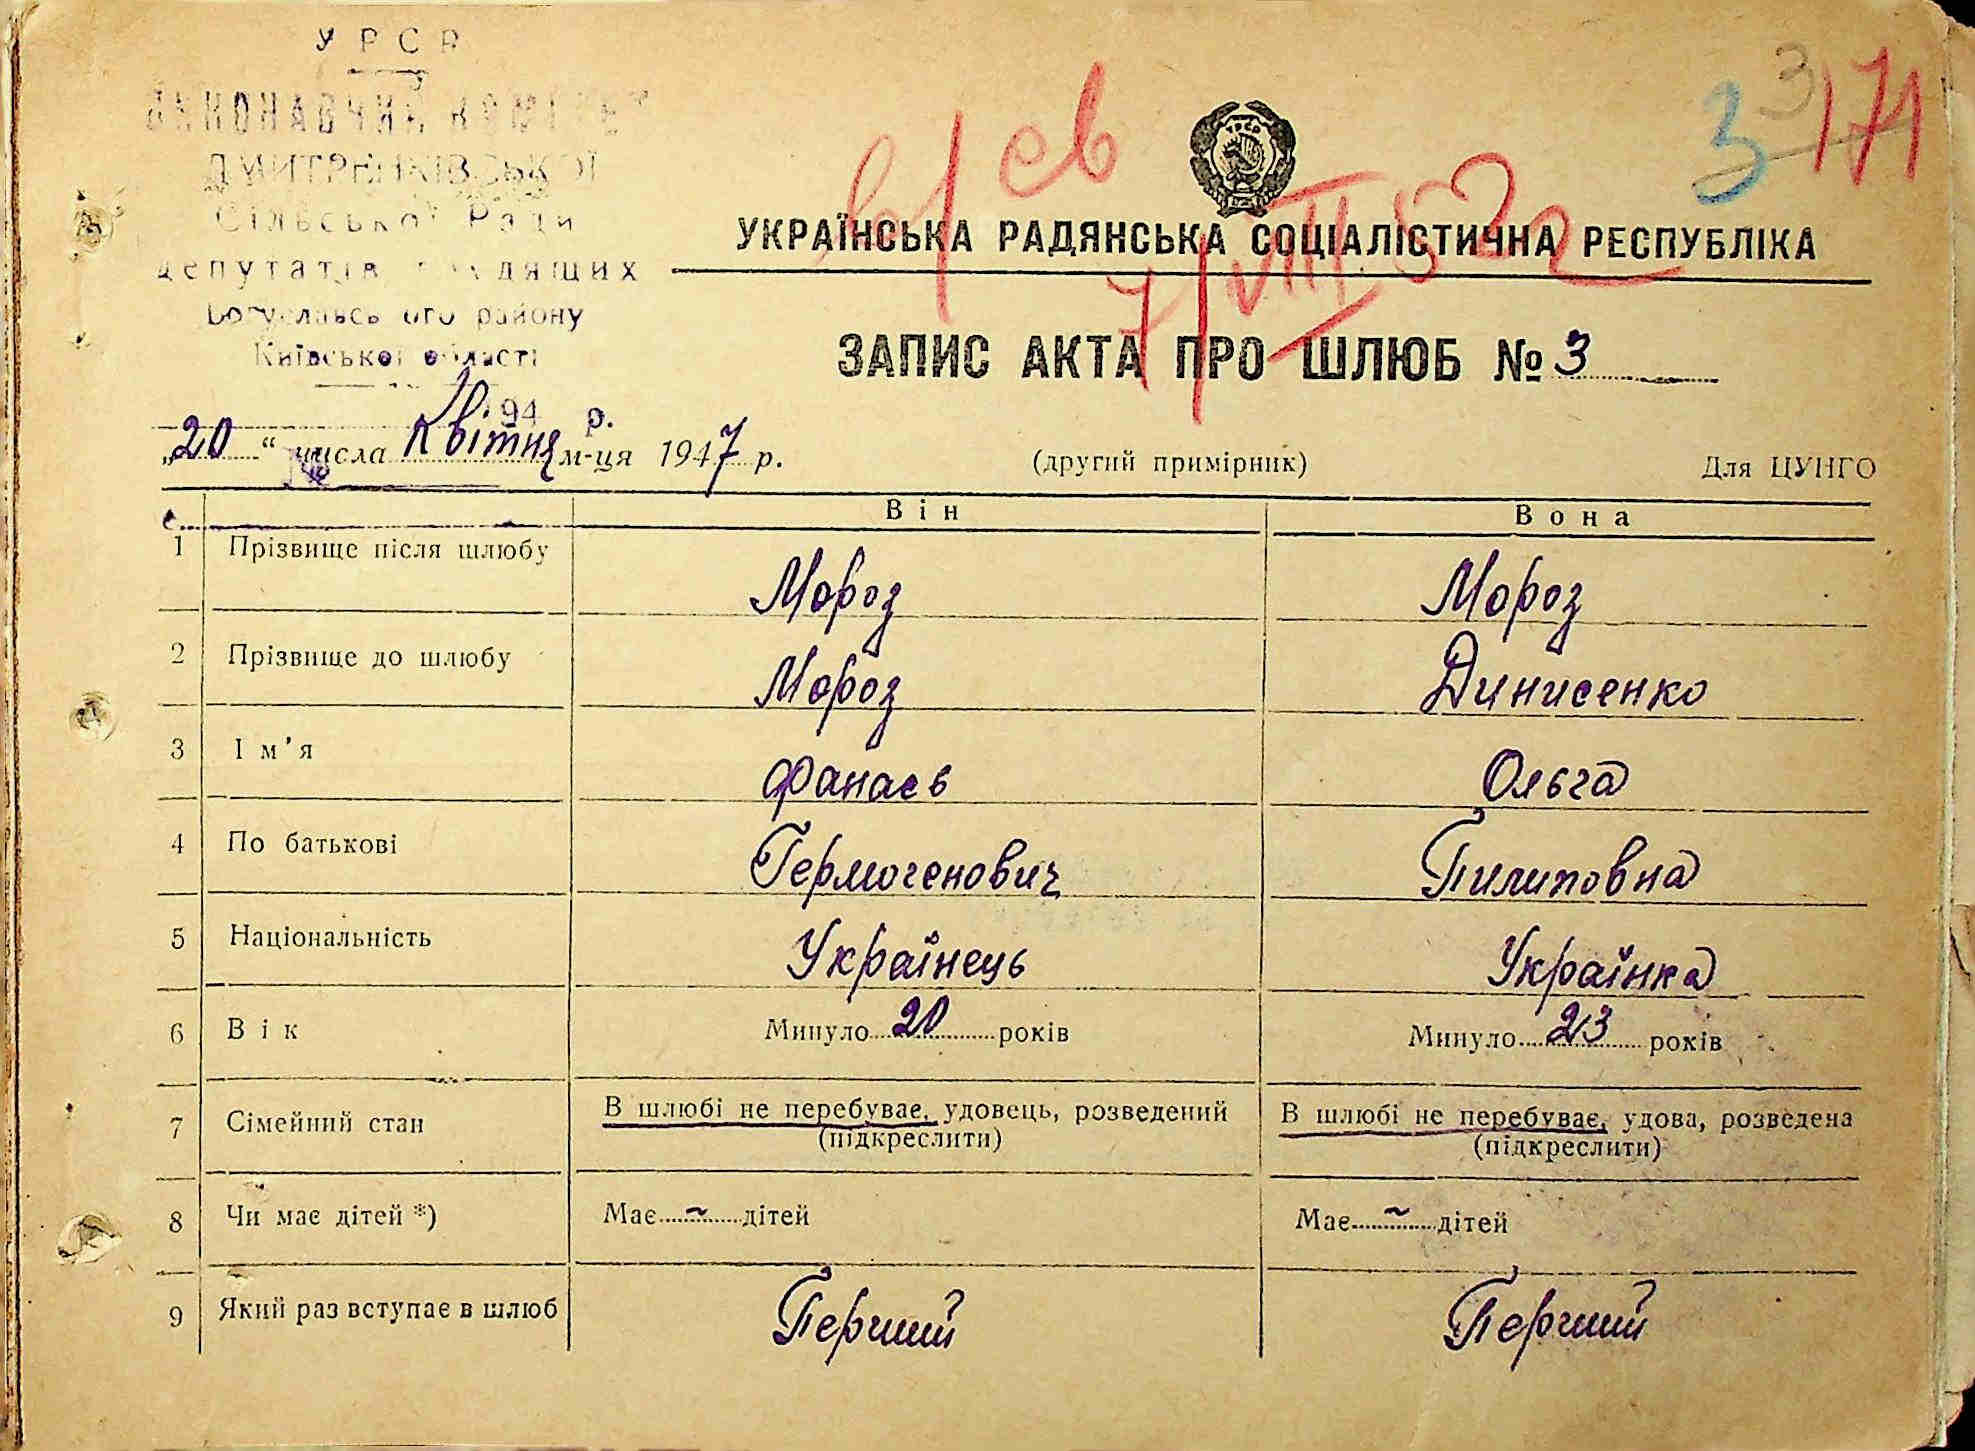 У Р С Р
ВИКОНАВЧИЙ КОМІТЕТ
ДМИТРЕНКІВСЬКОЇ
Сільської Ради
депутатів трудящих
Богуславського району
Київської області
194 р.
№
в/св
7/VIII 52г
3
3
171
УКРАЇНСЬКА РАДЯНСЬКА СОЦІАЛІСТИЧНА РЕСПУБЛІКА
ЗАПИС АКТА ПРО ШЛЮБ № 3
„20“ числа Квітня м-ця 1947 р. (другий примірник) Для ЦУНГО
Він Вона
1 Прізвище після шлюбу Мороз Мороз
2 Прізвище до шлюбу Мороз Динисенко
3 Ім’я Фанась Ольга
4 По батькові Гермогенович Пилиповна
5 Національність Українець Українка
6 Вік Минуло 20 років Минуло 23 років
7 Сімейний стан В шлюбі не перебуває, удовець, розведений В шлюбі не перебуває, удова, розведена
(підкреслити) (підкреслити)
8 Чи має дітей *) Має ~ дітей Має ~ дітей
9 Який раз вступає в шлюб Перший Перший